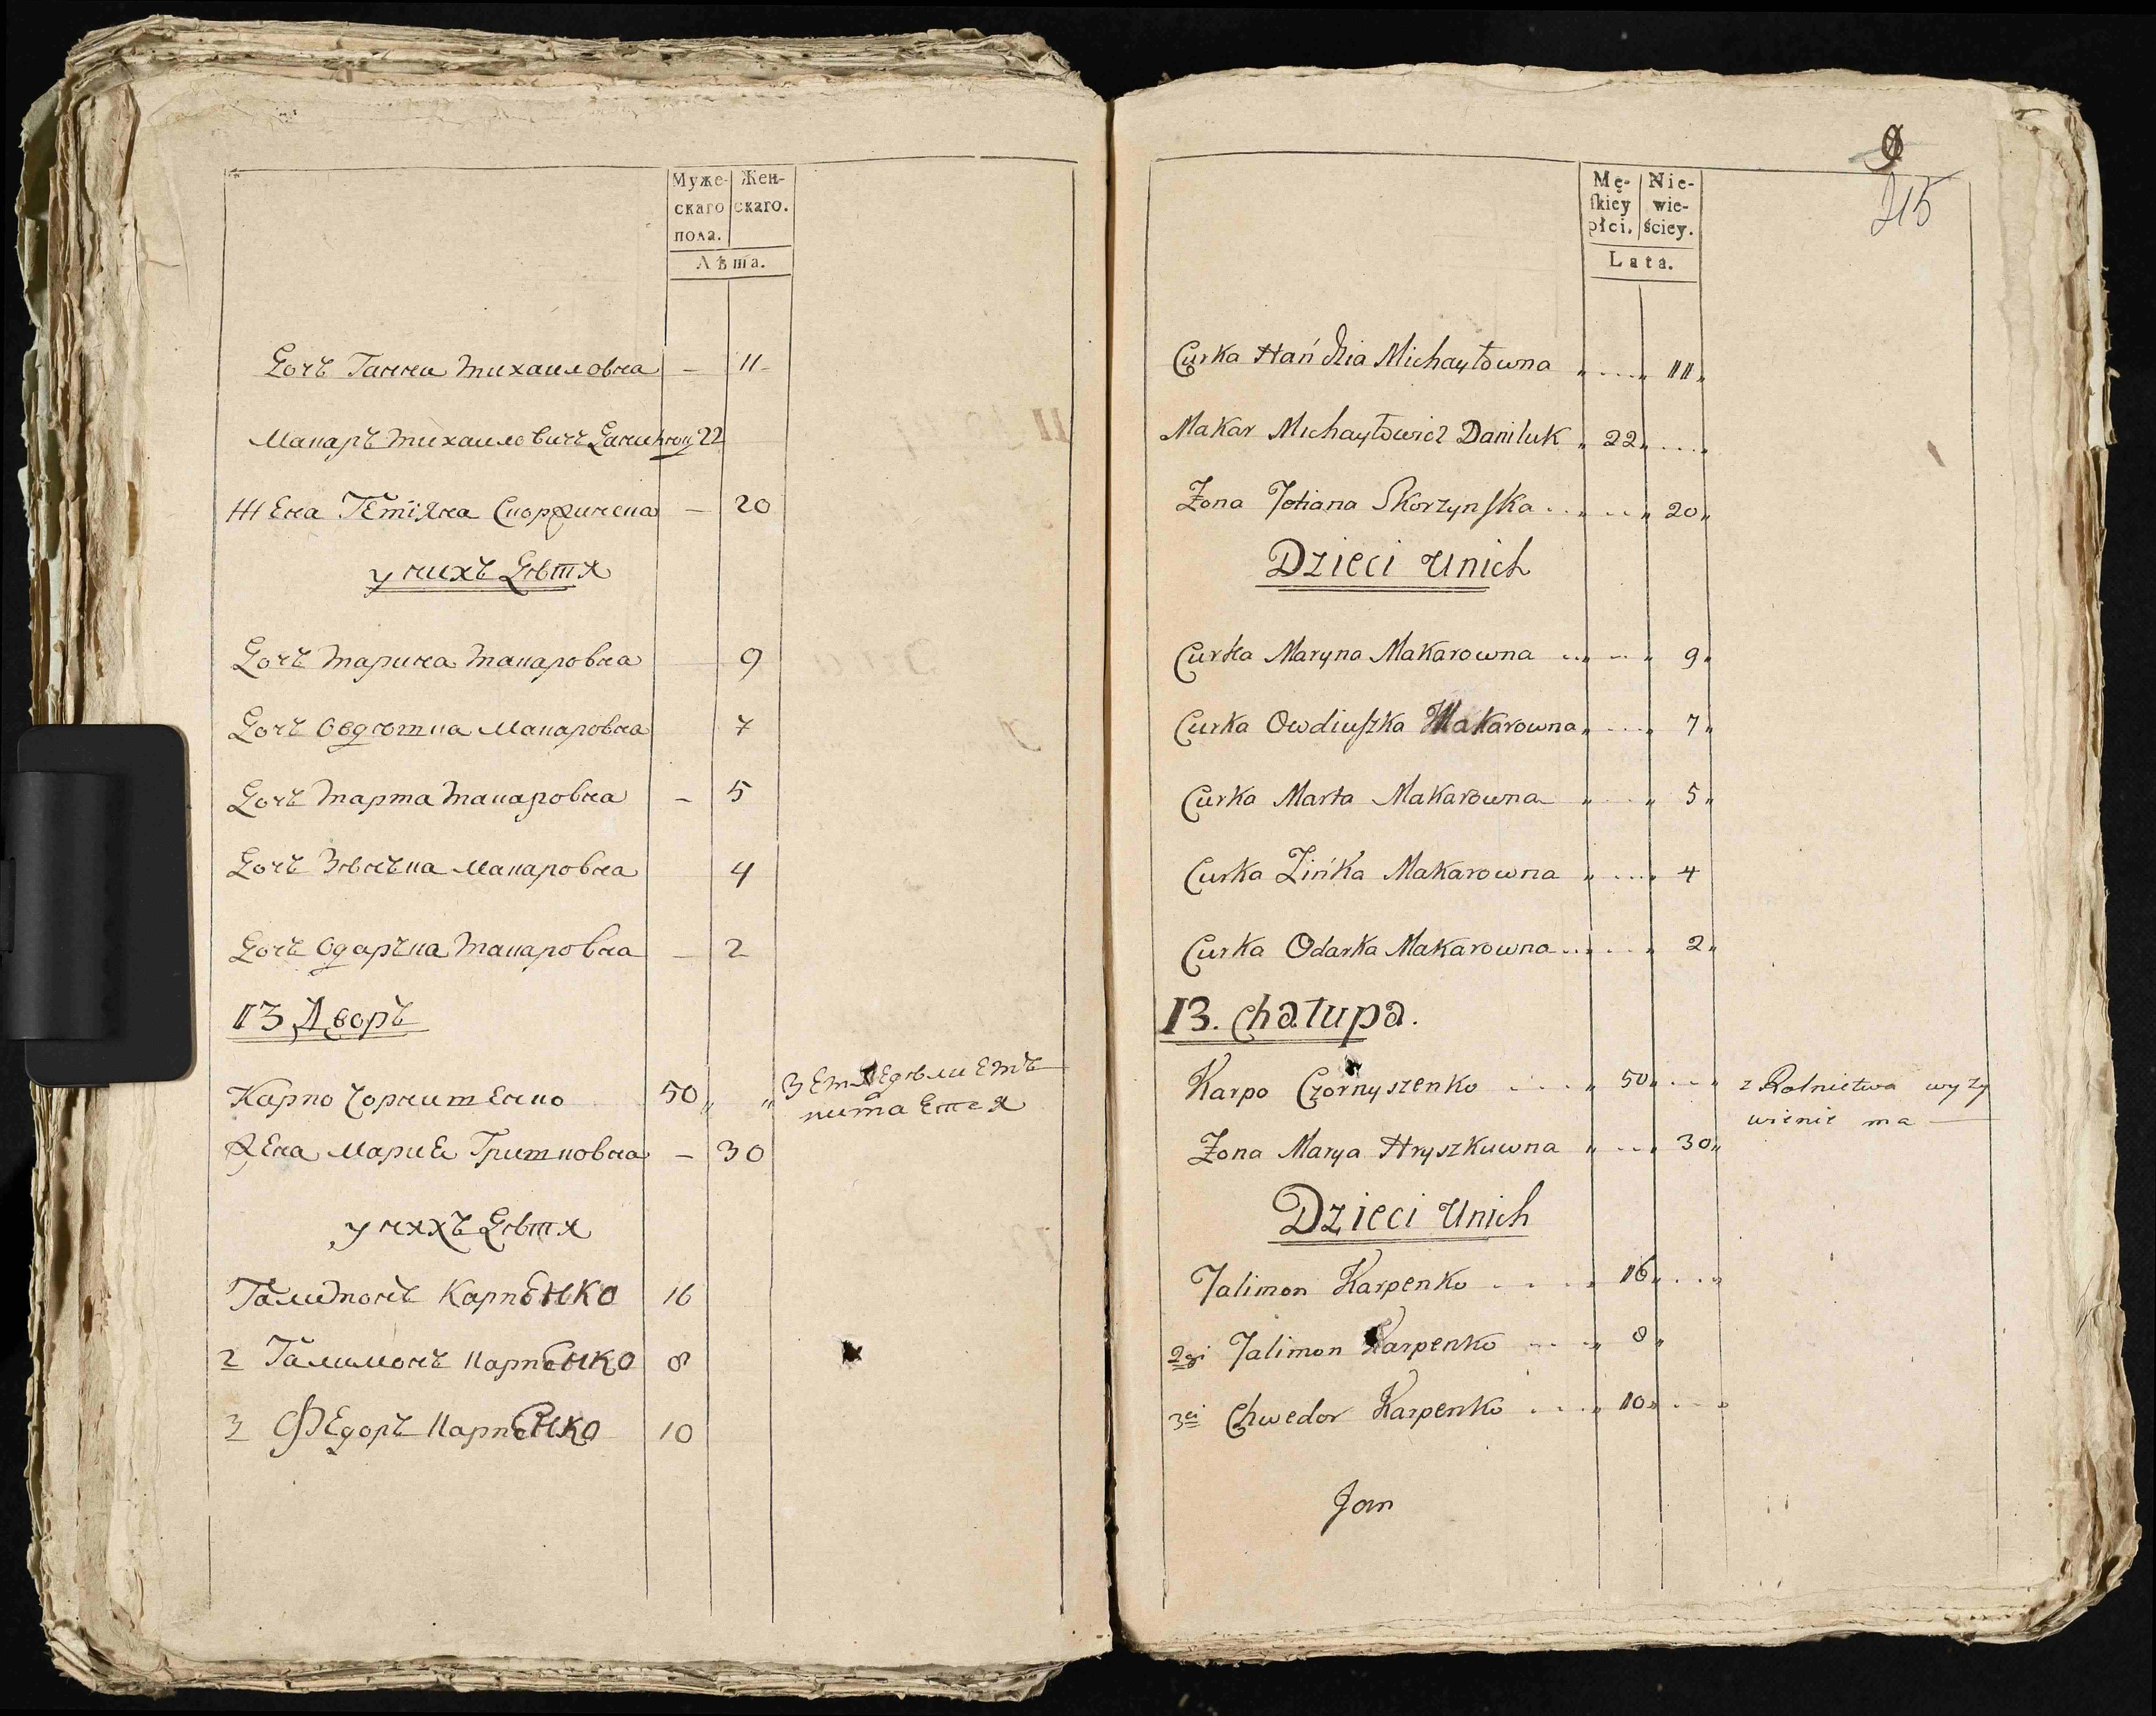 Муже- Жен-
скаго скаго.
пола.
Лѣта.
Дочъ Ганна Михаиловна – 11
Макаръ Михаиловичъ Данилюк 22
Жена Тетiяна Скоржинска – 20
у нихъ Дѣтя
Дочъ Марина Макаровна 9
Дочъ Овдюшка Макаровна 7
Дочъ Марта Макаровна – 5
Дочъ Зѣнъка Макаровна 4
Дочъ Одаръка Макаровна – 2
13 Дворъ
Карпо Чорнишенко 50 „ „ Земледѣлиемъ
питается
Жена Марие Гришковна – 30
у няхъ Дѣтя
Талимонъ Карпенко 16
2 Талимонъ Карпенко 8
3 Федоръ Карпенко 10
9
215
Mę- Nie-
ſkiey wie-
płci. ściey.
Lata.
Curka Hańdzia Michayłowna „ .... „ 11 „
Makar Michayłowicz Daniluk „ 22 „ .... „
Żona Tetiana Skorzynſka .. „ ... „ 20 „
Dzieci Unich
Curka Maryna Makarowna ... „ ... „ 9 „
Curka Owdiuſzka Makarowna „ .... „ 7 „
Curka Marta Makarowna „ .... „ 5 „
Curka Zińka Makarowna „ .... „ 4
Curka Odarka Makarowna .. „ .... „ 2 „
13. Chałupa.
Karpo Czornyszenko .... „ 50 „ ... „ z Rolnictwa wyży
wienie ma —
Żona Marya Hryszkuwna „ ... „ 30 „
Dzieci Unich
Talimon Karpenko .... „ 16 „ ... „
2gi Talimon Karpenko .... „ 8 „
3ci Chwedor Karpenko .... „ 10 „ ... „
Jan